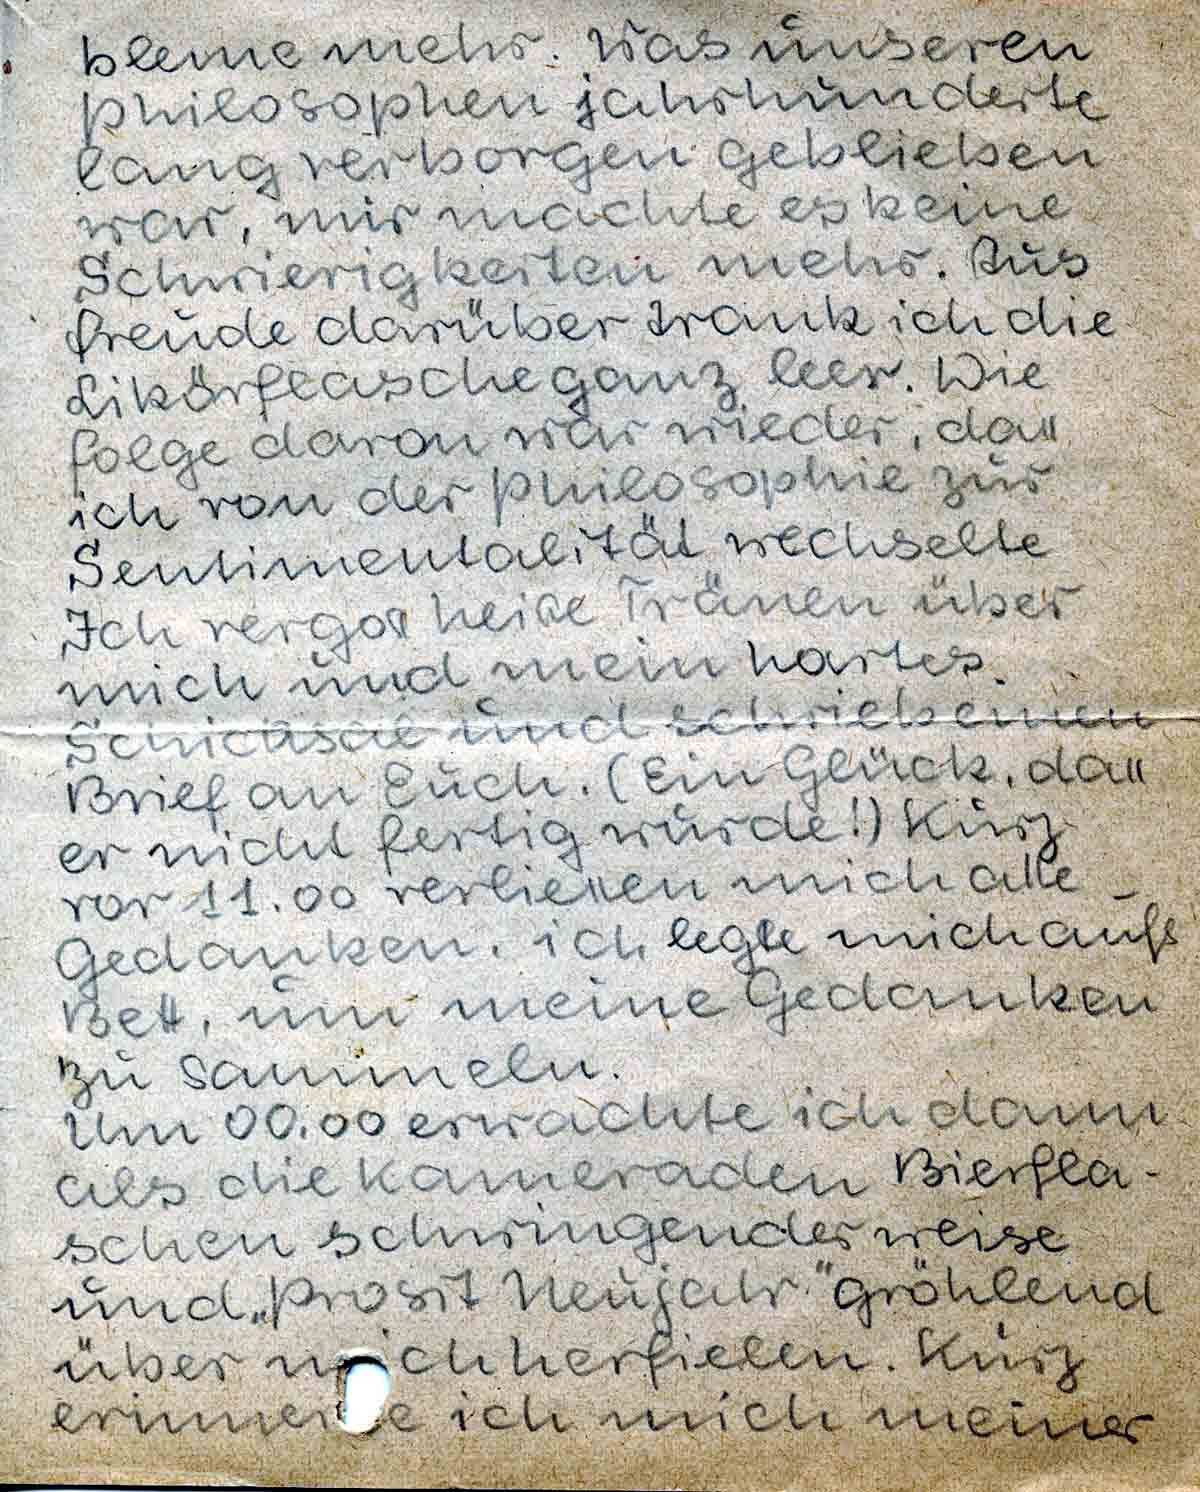 bleme mehr. Was unseren
Philosophen jahrhunderte
lang verborgen geblieben
war, mir machte es keine
Schwierigkeiten mehr. Aus
freude darüber trank ich die
Likörflasche ganz leer. Die
folge davon war wieder, daß
ich von der Philosophie zur
Sentimentalität wechselte
Ich vergoß heiße Tränen über
mich und mein hartes
Schicksal und schrieb einen
Brief an Euch. (Ein Glück, daß
er nicht fertig wurde!) Kurz
vor 11.00 verließen mich alle
Gedanken, ich legte mich aufs
Bett, um meine Gedanken
zu sammeln.
Um 00.00 erwachte ich dann
als die Kameraden Bierfla-
schen schwingenderweise
und „Prosit Neujahr" gröhlend
über mich herfielen. Kurz
erinnerte ich mich meiner